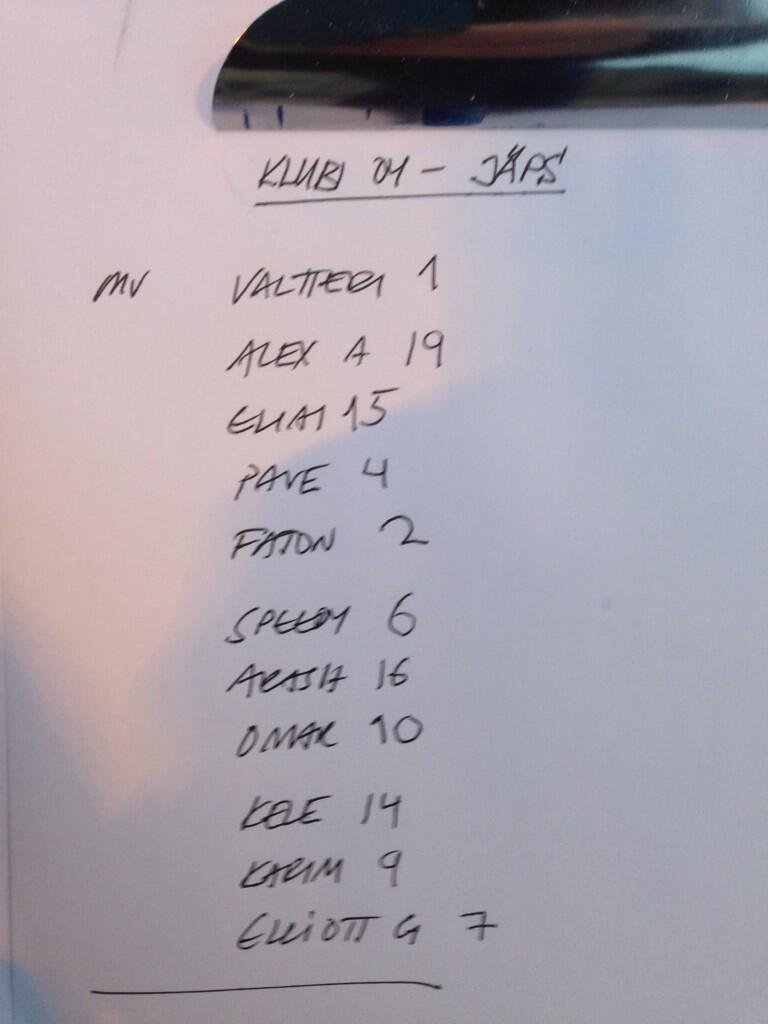 KLUBI 04 - JÄPS
MV VALTTERI 1
ALEX A 19
ELIAS 15
PAVE 4
FATON 2
SPEEDY 6
ARASH 16
OMAR 10
KELE 14
KARIM 9
ELLIOTT G 7